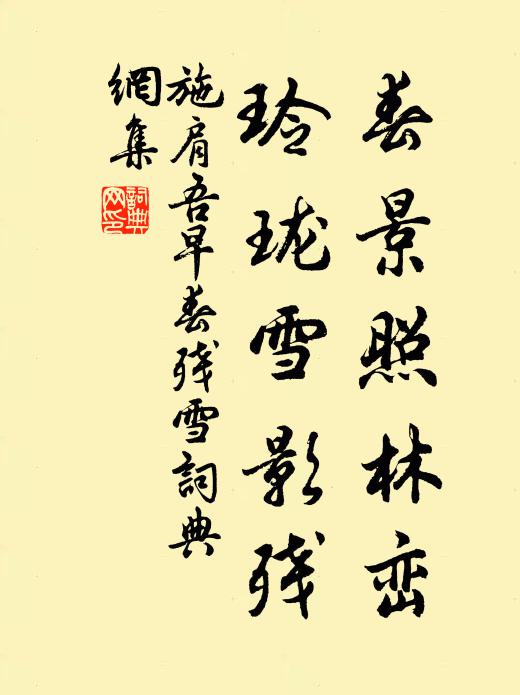 春景照林峦
玲珑雪影残
施肩吾早春残雪詞典
網集
詞典
网印